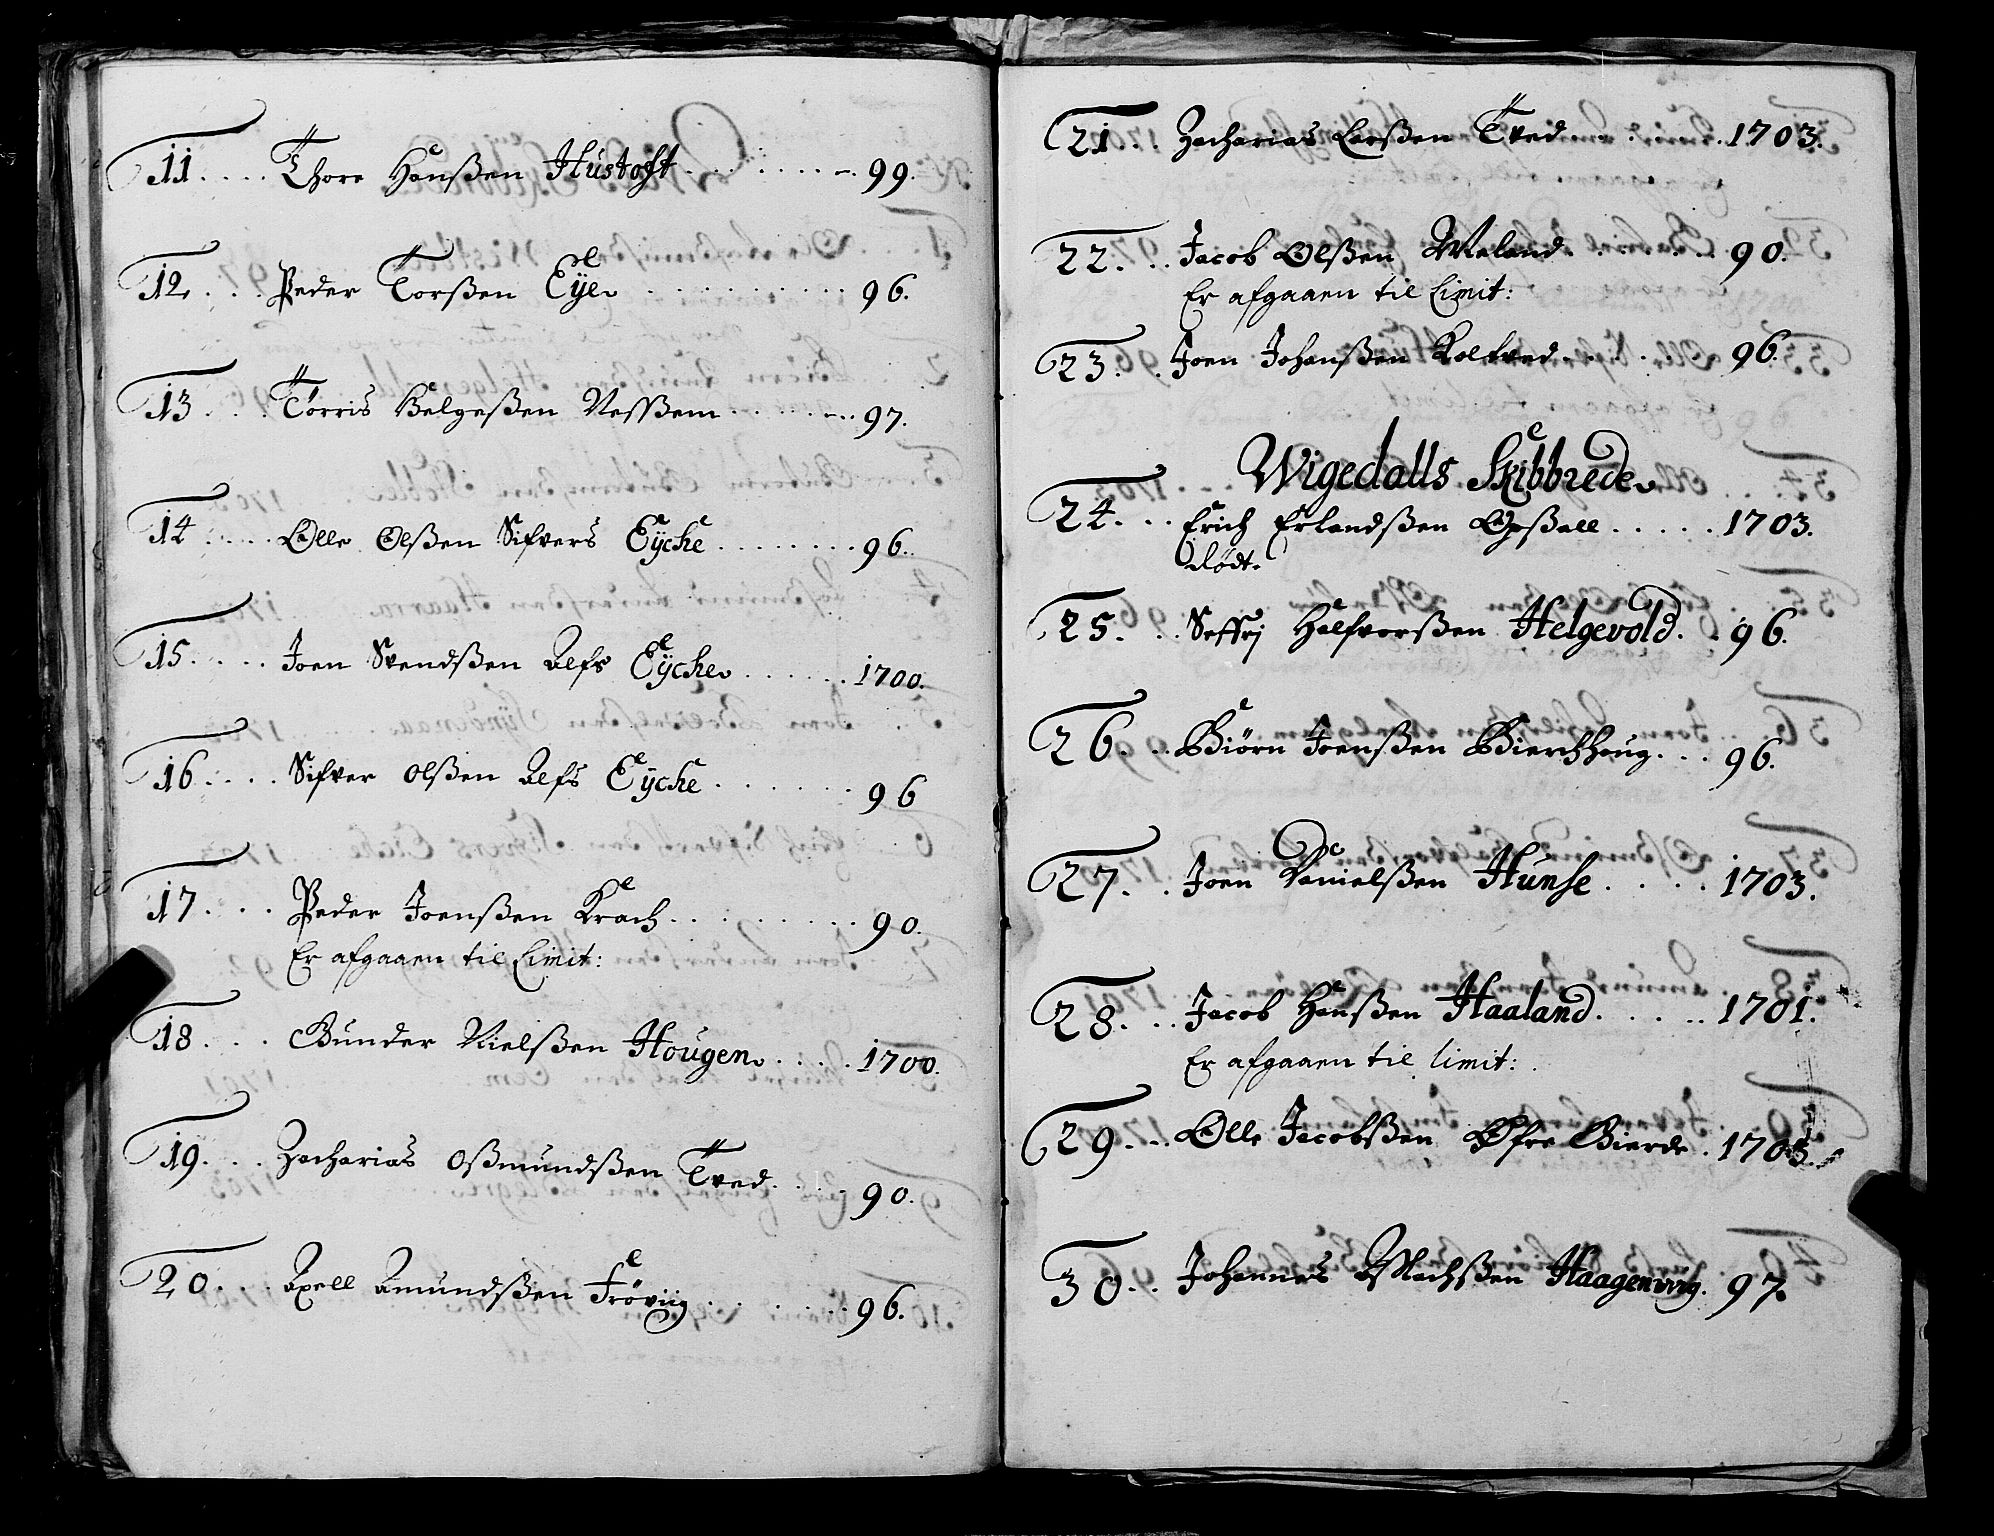 11. Thore Hanßen Hustoft 99.
12. Peder Torßen Eÿe 96.
13. Torris Helgeßen Neßßem 97.
14 Olle Olßen Sifvers Eÿche 96.
15. Joen Svendßen Alfs Eÿche 1700.
16. Sifver Olßen Alfs Eÿche 96
17. Peder Joenßen Krach 90.
Er afgaaen til Limit:
18. Gunder Nielßen Hougen 1700.
19. Zacharias Oßmundßen Tved 90.
20. Axell Amundßen Frøviig 96.
21. Zacharias Larßen Tved 1703.
22. Jacob Olßen Meland 90.
Er afgaaen til Limit:
23. Joen Johanßen Koltved 96.
Wigedalls Skibbrede
24. Erich Erlandßen Opßall 1703.
dødt.
25. Seffrj Halfvorßen Helgevold 96.
26. Biørn Joenßen Bierchhoug 96.
27. Joen Danielßen Hunse 1703.
28. Jacob Hanßen Haaland 1701.
Er afgaaen til limit:
29. Olle Jacobßen Øfre Bierde 1703.
30. Johannes Machßen Haagenvig. 97.